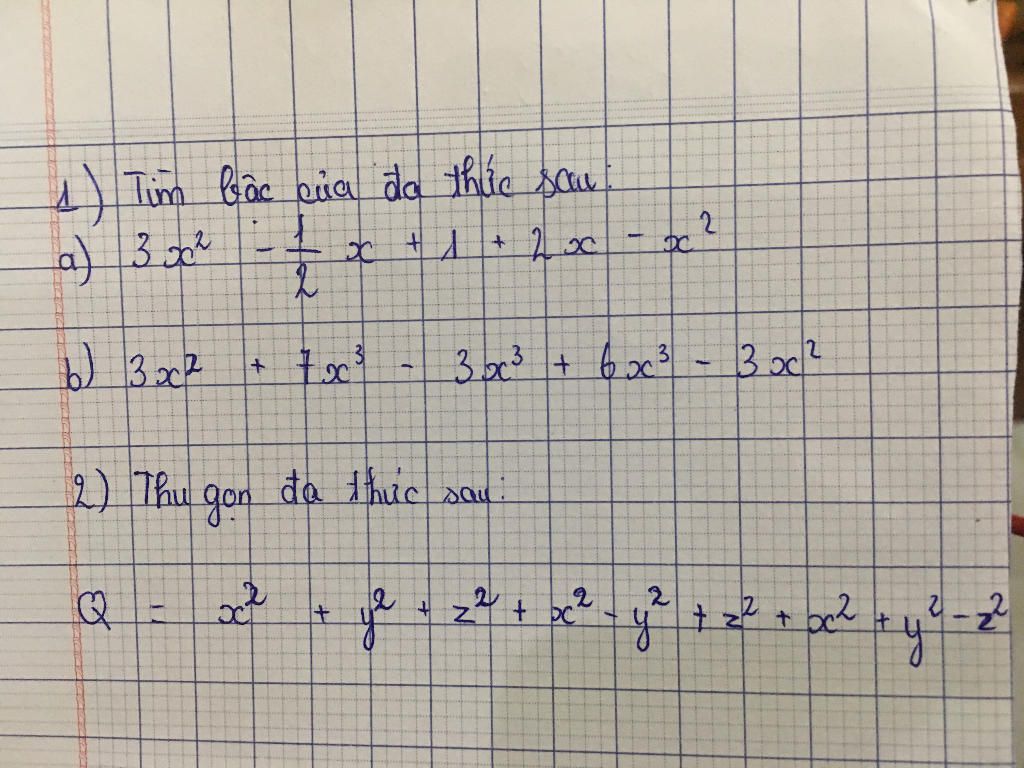 1) Tìm bậc của đa thức sau:
a) 3x² - 1/2 x + 1 + 2x - x²
b) 3x² + 7x³ - 3x³ + 6x³ - 3x²
2) Thu gọn đa thức sau:
Q = x² + y² + z² + x² - y² + z² + x² + y² - z²